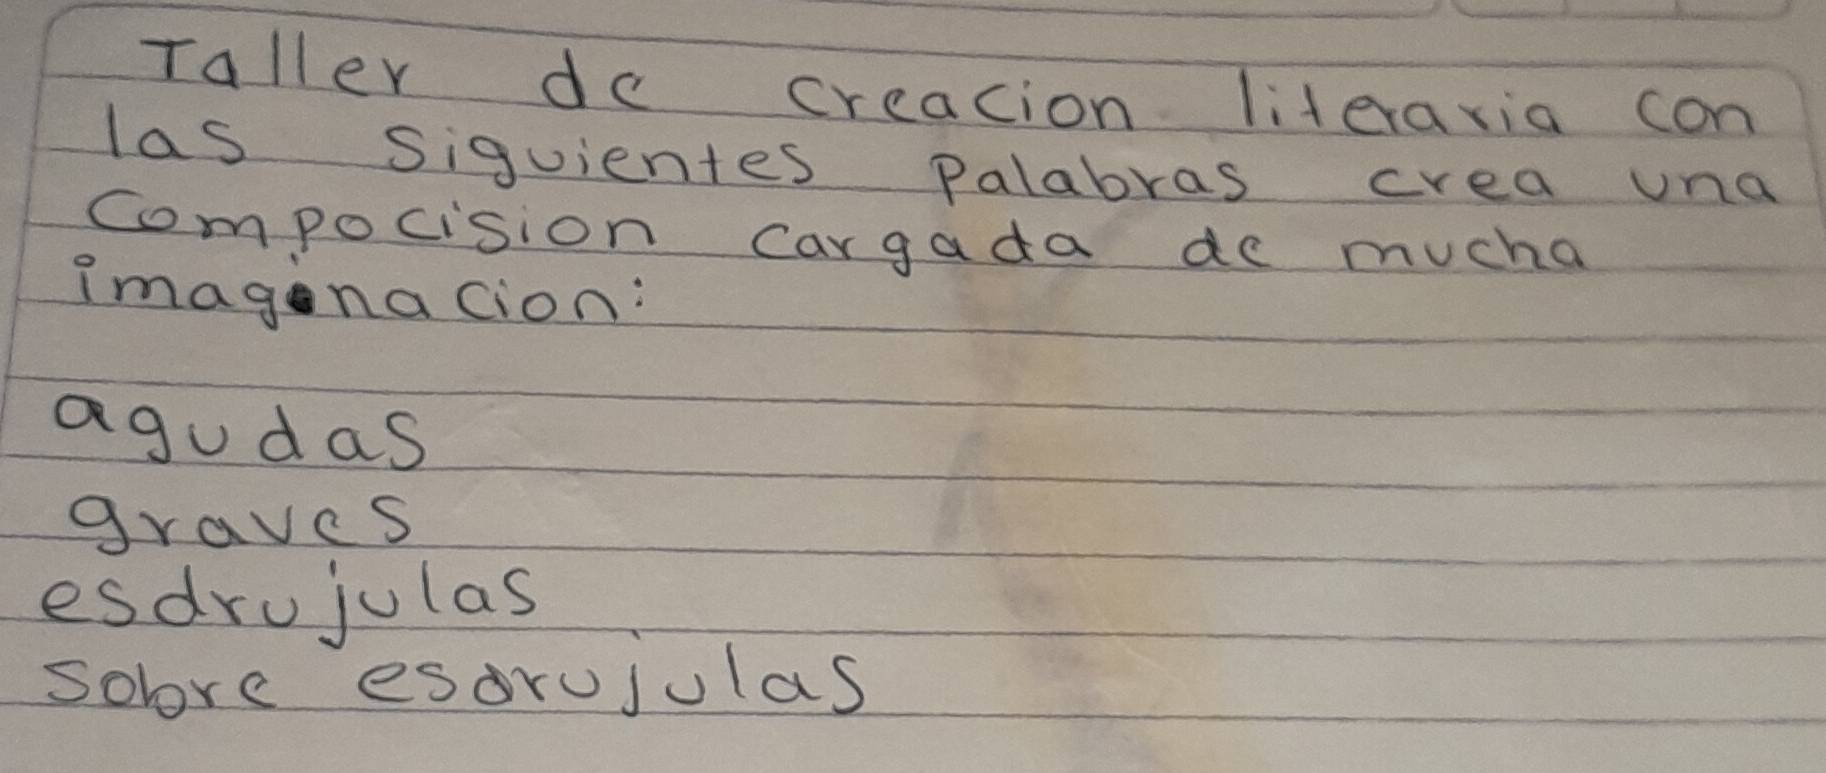 Taller de creacion literaria con
las siguientes palabras crea una
compocision cargada de mucha
imaginacion:
agudas
graves
esdrujulas
sobre esdrujulas